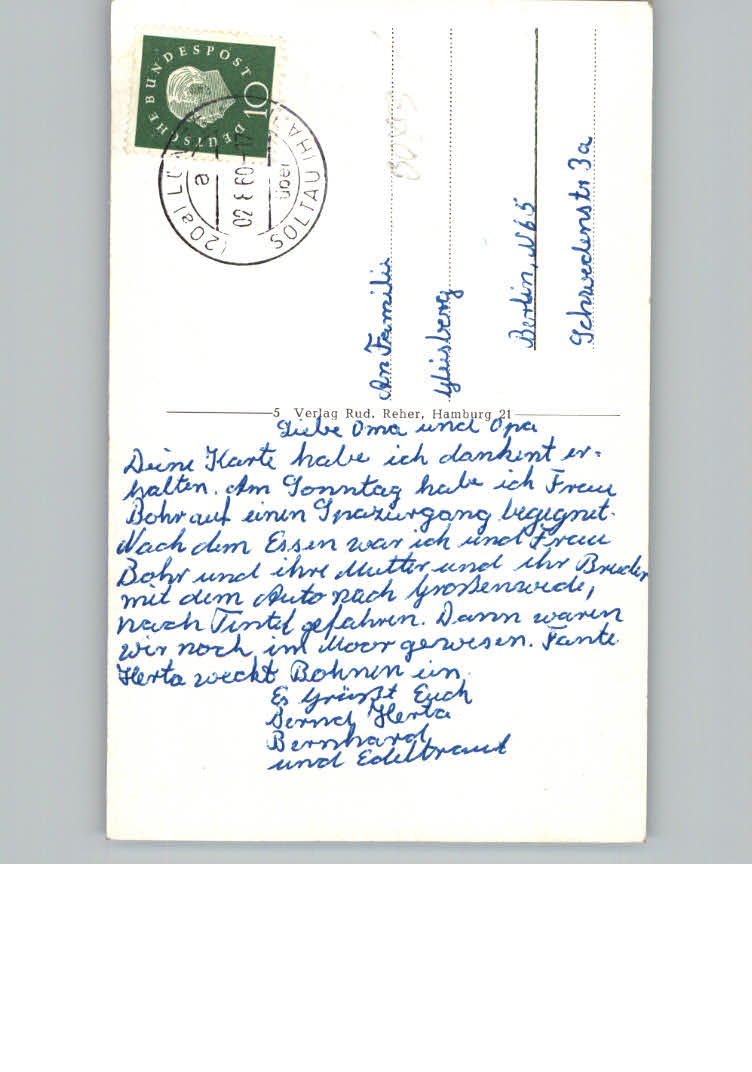 DEUTSCHE BUNDESPOST
10
(20a) LÜN
a
02.8.60-17
über
SOLTAU (HA
An Familie
Gleisberg
Berlin, N65
Schwedenstr 3a
5 Verlag Rud. Reher, Hamburg 21
Liebe Oma und Opa
Deine Karte habe ich dankent er-
halten. Am Sonntag habe ich Frau
Bohr auf einen Spaziergang begegnet.
Nach dem Essen war ich und Frau
Bohr und ihre Mutter und ihr Bruder
mit dem Auto nach Großenwede,
nach Tintel gefahren. Dann waren
wir noch im Moor gewesen. Tante
Herta weckt Bohnen ein.
Es Grüßt Euch
Bernd, Herta
Bernhard
und Edeltraut